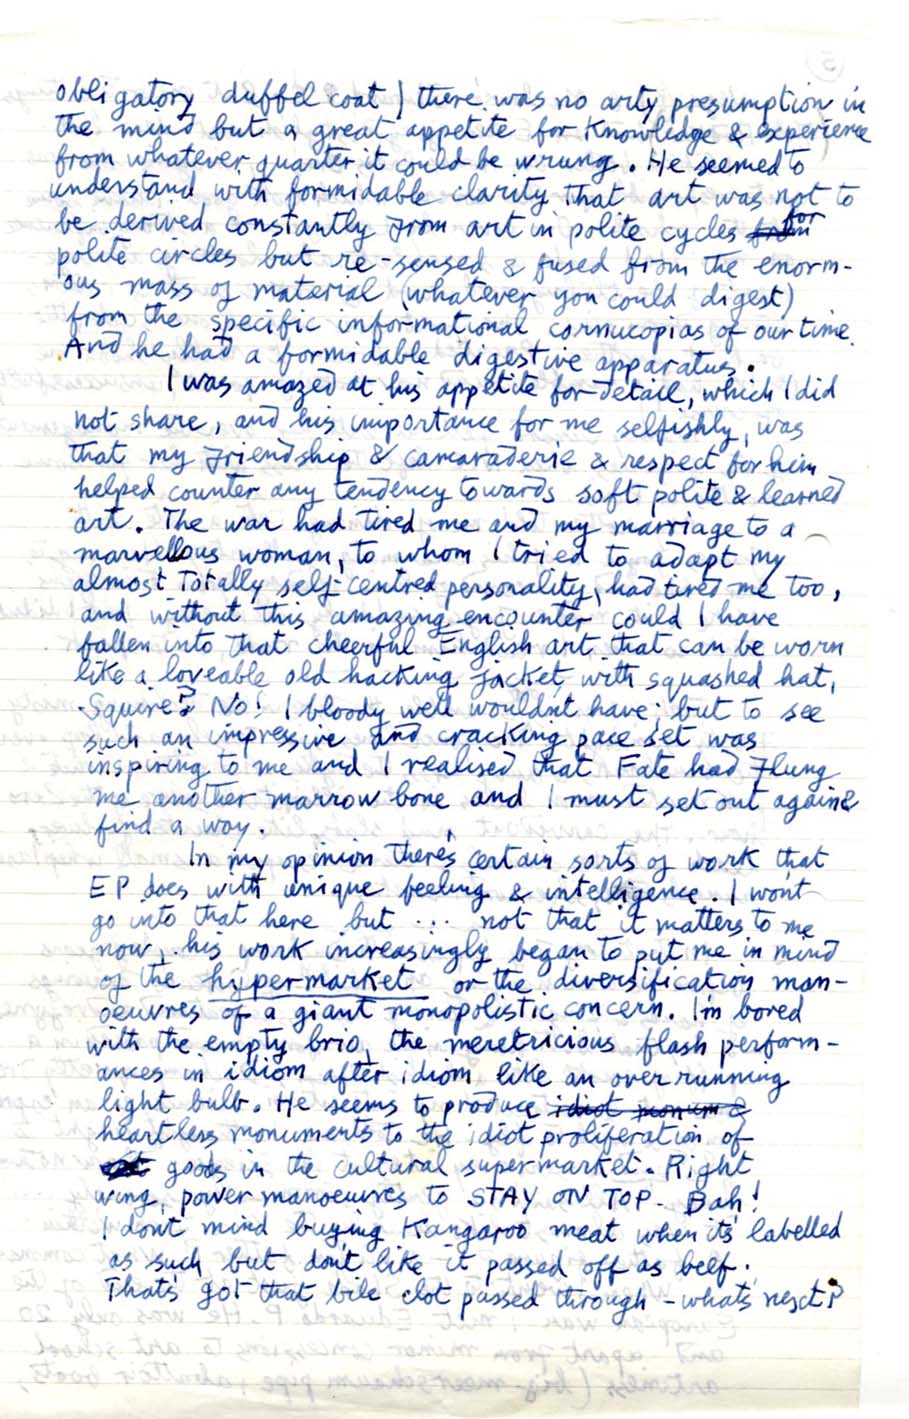 obligatory duffel coat) there was no arty presumption in
the mind but a great appetite for knowledge & experience
from whatever quarter it could be wrung. He seemed to
understand with formidable clarity that art was not to
be derived constantly from art in polite cycles from for
polite circles but re-sensed & fused from the enorm-
ous mass of material (whatever you could digest)
from the specific informational cornucopias of our time.
And he had a formidable digestive apparatus.
I was amazed at his appetite for detail, which I did
not share, and his importance for me selfishly, was
that my friendship & camaraderie & respect for him
helped counter any tendency towards soft polite & learned
art. The war had tired me and my marriage to a
marvellous woman, to whom I tried to adapt my
almost totally self-centred personality, had tired me too,
and without this amazing encounter could I have
fallen into that cheerful English art that can be worn
like a loveable old hacking jacket, with squashed hat,
Squire? No! I bloody well wouldn't have; but to see
such an impressive and cracking pace set was
inspiring to me and I realised that Fate had flung
me another marrow bone and I must set out again &
find a way.
In my opinion there's certain sorts of work that
EP does with unique feeling & intelligence. I won't
go into that here but ... not that it matters to me
now, his work increasingly began to put me in mind
of the hypermarket or the diversification man-
oeuvres of a giant monopolistic concern. I'm bored
with the empty brio, the meretricious flash perform-
ances in idiom after idiom like an over running
light bulb. He seems to produce idiot monum
heartless monuments to the idiot proliferation of
goods in the cultural supermarket. Right
wing, power manoeuvres to STAY ON TOP. Bah!
I don't mind buying Kangaroo meat when it's labelled
as such but don't like it passed off as beef.
That's got that bile clot passed through - what's next?